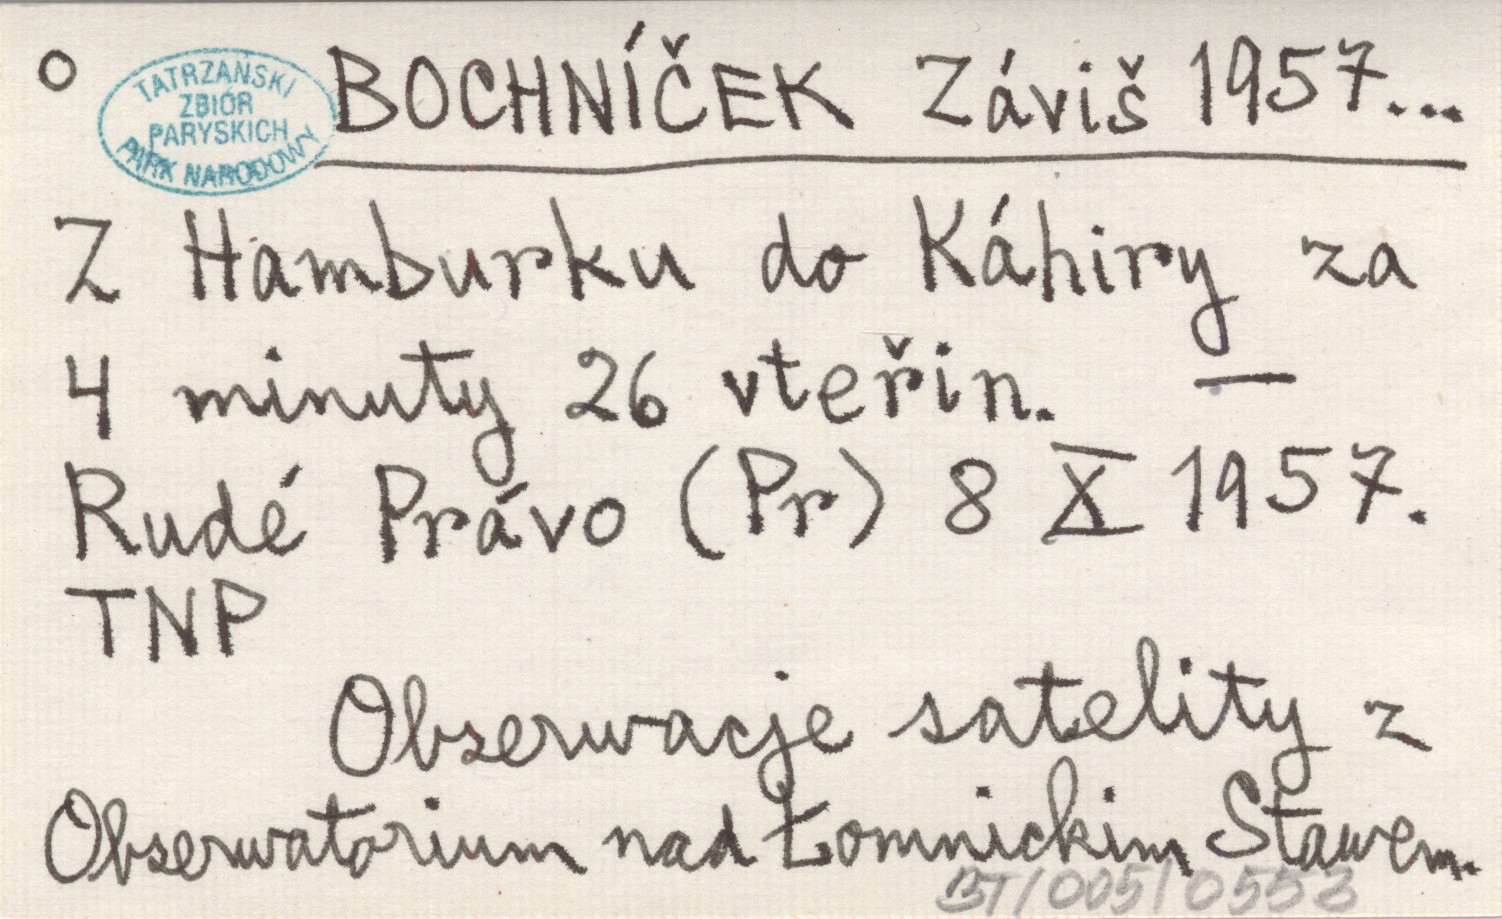 o BOCHNÍČEK Záviš 1957...
TATRZAŃSKI
ZBIÓR
PARYSKICH
PARK NARODOWY
Z Hamburku do Káhiry za
4 minuty 26 vteřin. —
Rudé Právo (Pr) 8 X 1957.
TNP
Obserwacje satelity z
Obserwatorium nad Łomnickim Stawem.
BT/005/0553